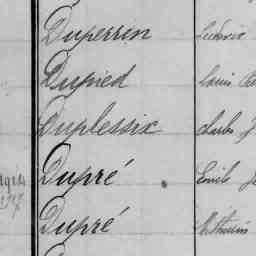 Duperrin Ludovic
Dupied Louis
Duplessix Charles J
Dupré Emile
Dupré Mathurin